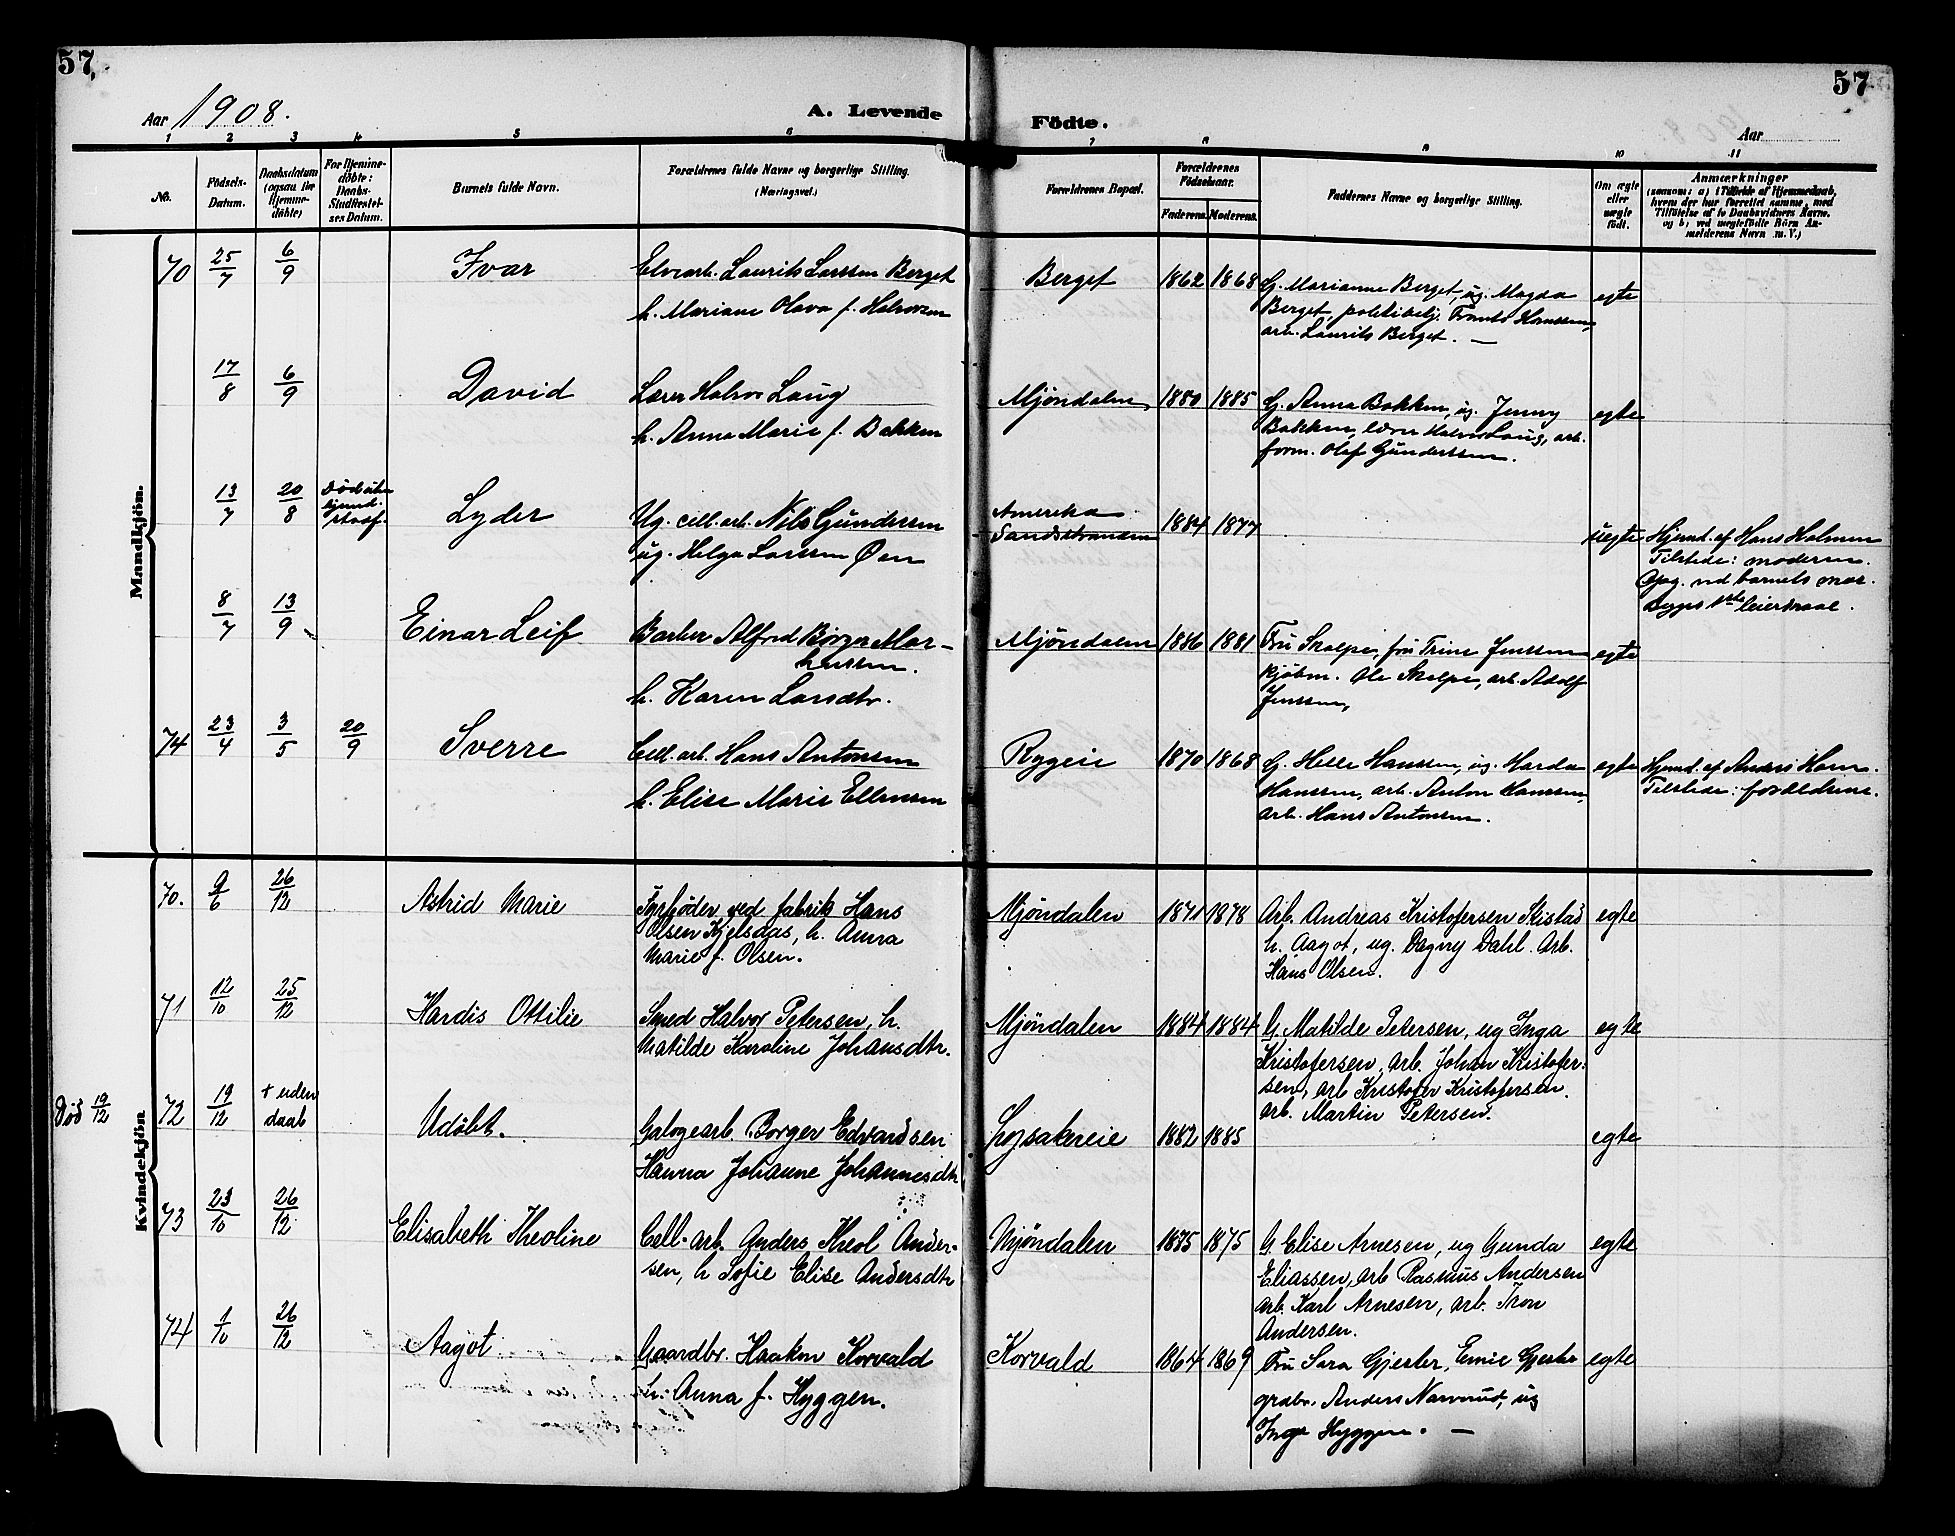 57.
57
Aar 1908.
A. Levende
Födte.
Aar
1 2 3 4 5 6 7 8 9 10 11
No.
Födsels-
Datum.
Daabsdatum
(ogsaa for
Hjemme-
döbte)
For Hjemme-
döbte:
Daabs-
Stadfæstel-
ses Datum.
Barnets fulde Navn.
Forældrenes fulde Navne og borgerlige Stilling.
(Næringsvei.)
Forældrenes Bopæl.
Forældrenes
Födselsaar.
Faderens. Moderens.
Faddernes Navne og borgerlige Stilling.
Om ægte
eller
uægte
födt.
Anmærkninger
(saasom: a) i Tilfælde af Hjemmedaab,
hvem der har forrettet samme, med
Tilföielse af to Daabsvidners Navne,
og b) ved uægtefödte Börn An-
melderens Navn m. V.)
Mandkjön.
70 25/7 6/9 Ivar
Elvearb. Laurits Larssen Berget
h. Mariane Olava f. Halvorsen
Berget 1862 1868
G. Marianne Berget, ug. Magda
Berget, politibetj. Frants Hanssen,
arb. Laurits Berget. —
egte
17/8 6/9 David
Lærer Halvor Laug
h. Anna Marie f. Bakken
Mjöndalen, 1880 1885
G. Anna Bakken, ug. Jenny
Bakken, lærer Halvor Laug, arb.
form. Olaf Gunderssen.
egte
13/7 20/8 Död uden
hjemd.
stadf.
Lyder
Ug. cell. arb. Nils Gundersen
ug. Helga Larssen Øen
Amerika
Sandstranden 1884 1877
uegte
Hjemd. af Hans Holmen
Tilstede: moderen.
Opg. ved barnets mor.
begges 1ste leiermaal.
8/7 13/9 Einar Leif
Barber Alfred Börge Mar-
henssen.
h. Karen Larsdtr.
Mjöndalen 1886 1881
Fru Skalpe, fru Trine Jenssen
kjöbm. Ole Skalpe, arb. Adolf
Jenssen,
egte
74 23/4 3/5 20/9 Sverre
Cell. arb. Hans Antonsen
h. Elise Marie Ellensen
Ryggeie 1870 1868
G. Helle Hanssen, ug. Harda
Hanssen, arb. Anton Hanssen,
arb. Hans Antonsen.
egte
Hjemd. af Anders Horn.
Tilstede: forældrene.
Kvindekjön
70. 9/6 26/12 Astrid Marie
Fyrbøder ved fabrik Hans
Olsen Kjelsaas, h. Anna
Marie f. Olsen.
Mjöndalen 1871 1878
Arb. Andreas Kristofersen Skistad
h. Aagot, ug. Dagny Dahl. Arb.
Hans Olsen.
egte
71 12/10 25/12 Hardis Ottilie
Smed Halvor Petersen, h.
Matilde Karoline Johansdtr.
Mjöndalen 1884 1884
G. Matilde Petersen, ug Inga
Kristofersen, arb. Johan Kristofer-
sen, arb Kristofer Kristofersen.
arb. Martin Petersen.
egte
Död 19/12
72 19/12 + uden
daab
Udöbt.
Galogearb. Borger Edvardsen
Hanna Johanne Johannesdtr
1882 1885
egte
73 23/10 26/12 Elisabeth Theoline
Cell. arb. Anders Theol Ander-
sen, h Sofie Elise Andersdtr
Mjöndalen 1875 1875
G. Elise Arnesen, ug Gunda
Eliassen, arb Rasmus Andersen
arb. Karl Arnesen, arb. Tron
Andersen.
egte
74 1/10 26/12 Aagot
Gaardbr. Haakon Korvald
h. Anna f. Hyggen.
Korvald 1864 1869
Fru Sara Gjerter, Emie Gjerter
grdbr. Anders Narverud, ug
Inga Hyggen. —
egte